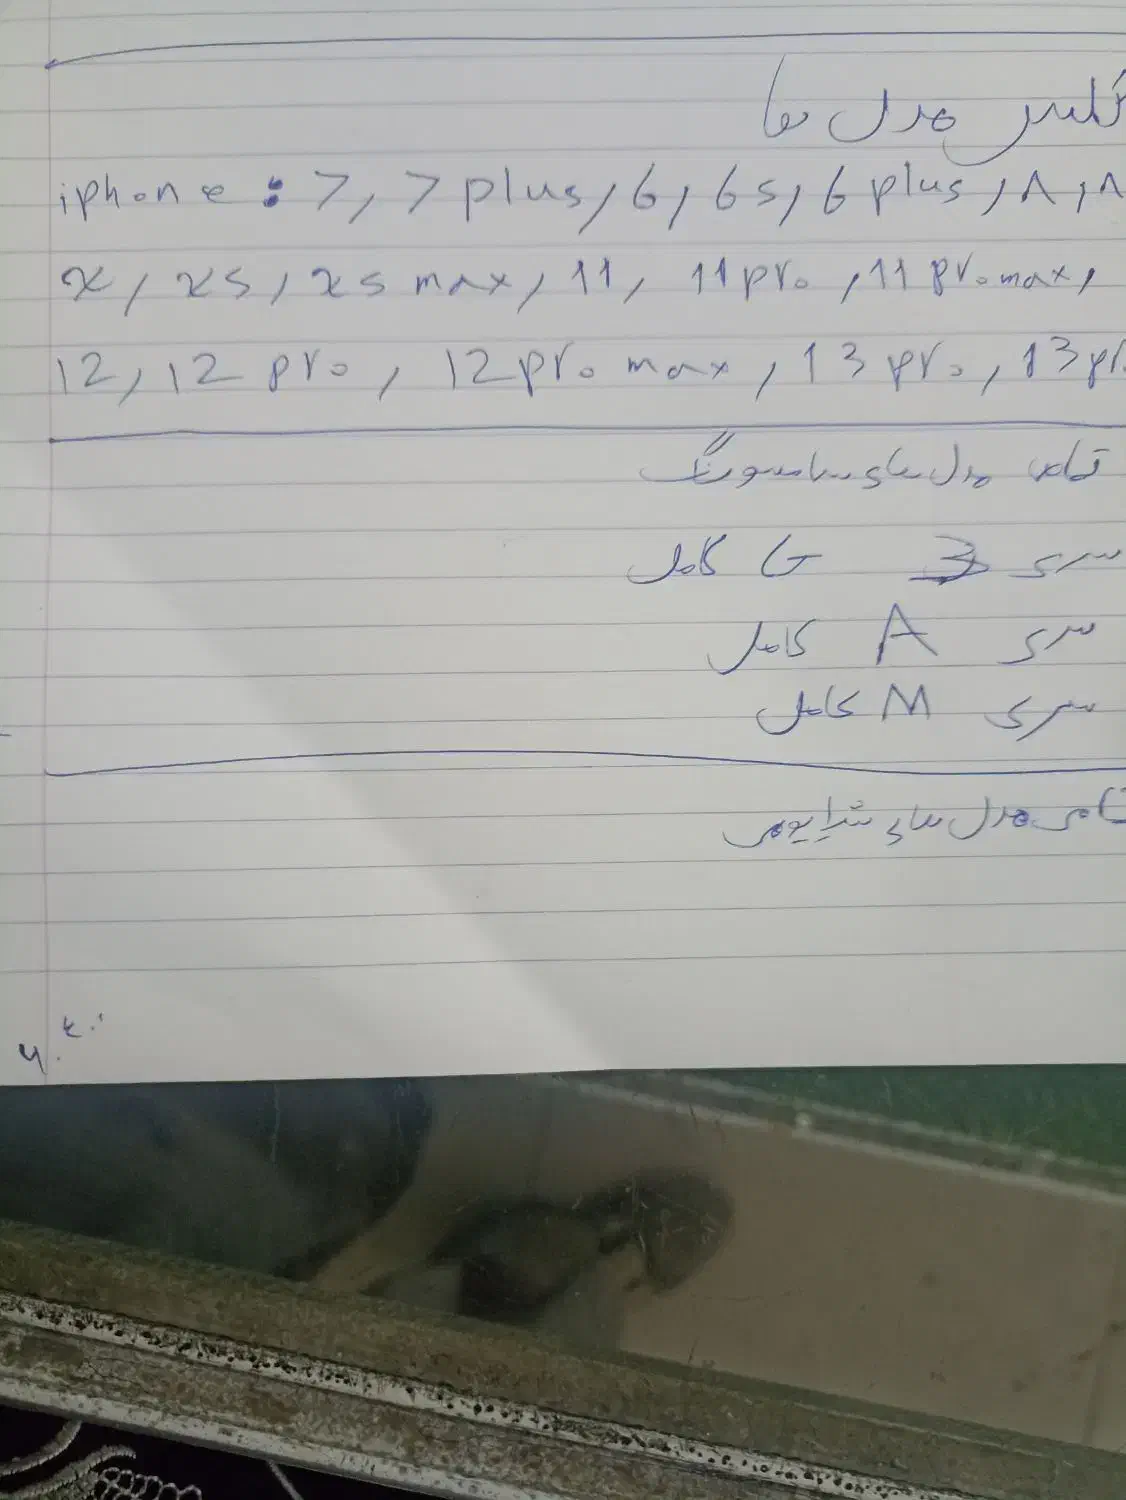 گلس مدل ها
iphone : 7, 7 plus, 6, 6s, 6 plus, ۸, ۸
x, xs, xs max, 11, 11 pro, 11 pro max,
12, 12 pro, 12 pro max, 13 pro, 13 pr
تمام مدل های سامسونگ
سری G کامل
سری A کامل
سری M کامل
تمامی مدل های شیایومی